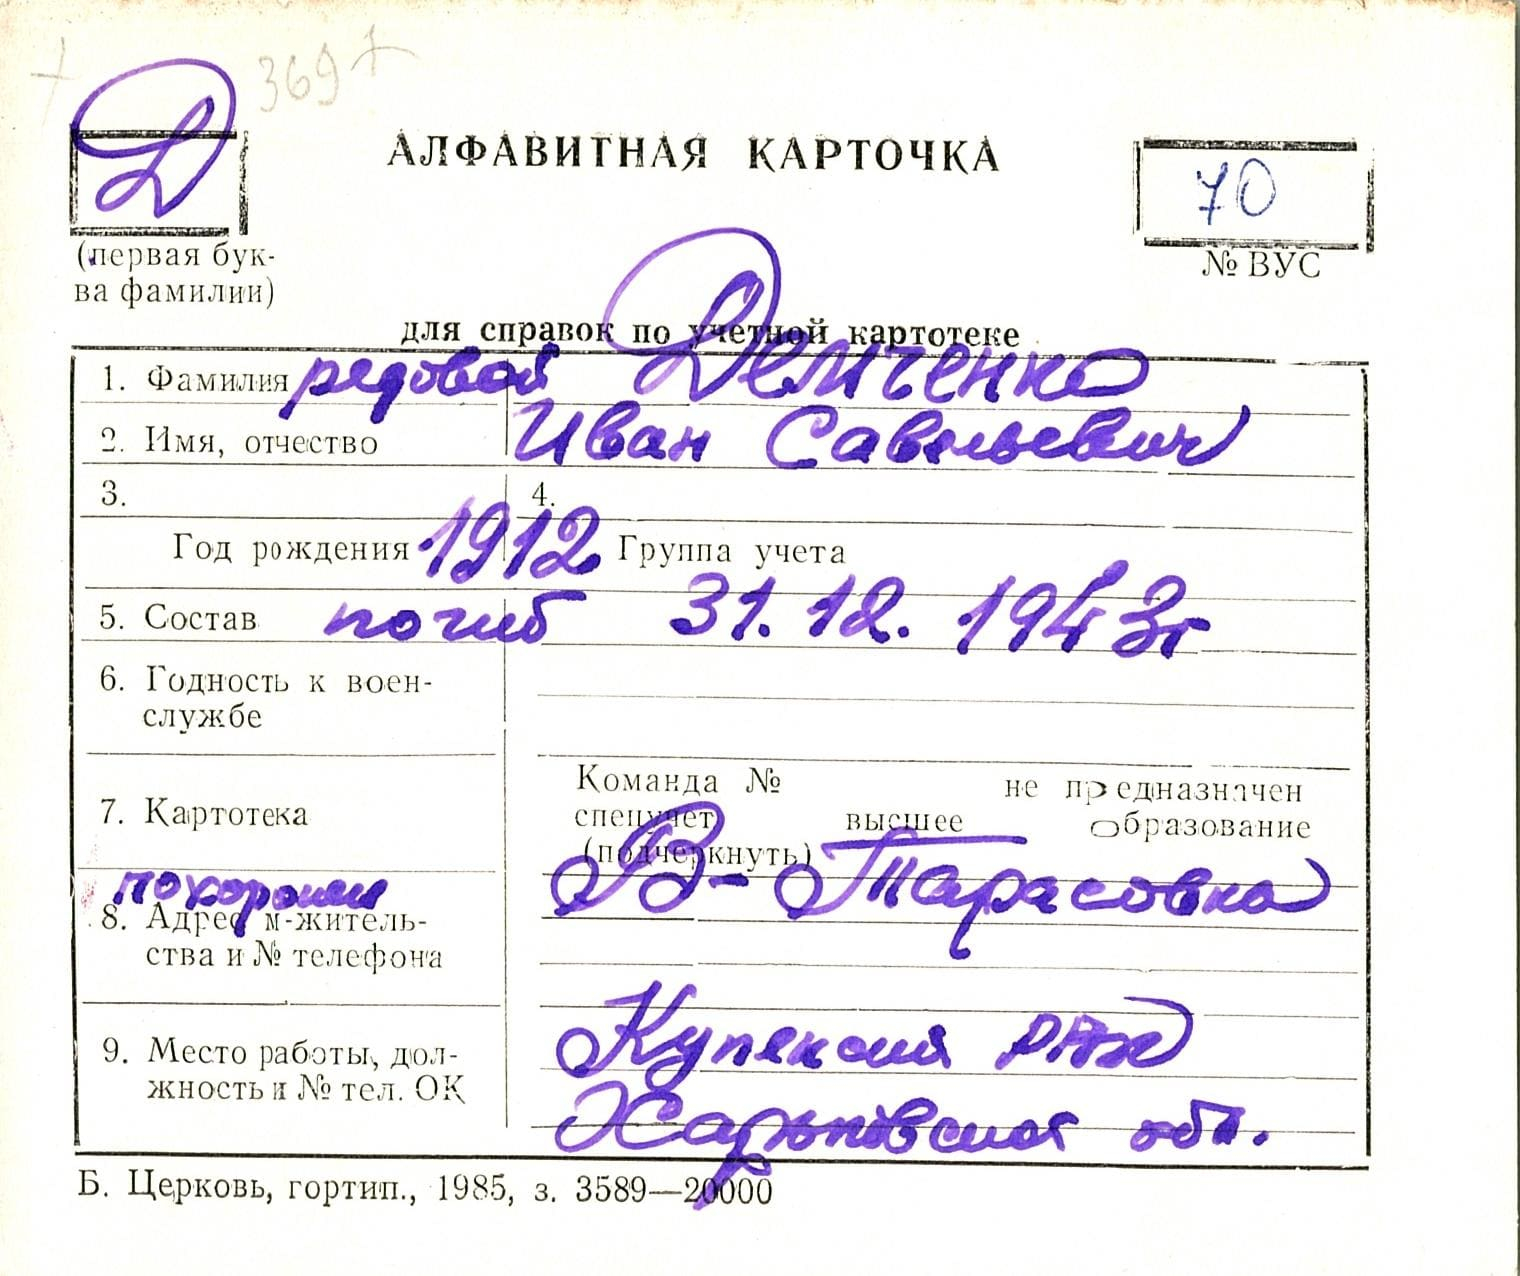 3697
Д
АЛФАВИТНАЯ КАРТОЧКА
70
(первая бук-
ва фамилии)
№ ВУС
для справок по учетной картотеке
1. Фамилия рядовой Демченко
2. Имя, отчество Иван Савельевич
3. 4.
Год рождения 1912 Группа учета
5. Состав погиб 31.12.1943г
6. Годность к воен-
службе
Команда № не предназначен
7. Картотека спецучет высшее образование
(подчеркнуть)
похоронен В-Тарасовка
8. Адрес м-житель-
ства и № телефона
9. Место работы, дол-
жность и № тел. ОК
Купянский
Харьковская обл.
Б. Церковь, гортип., 1985, з. 3589—20000